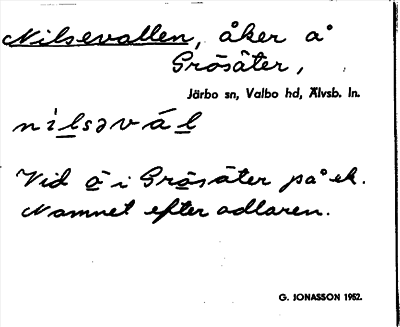 Nilsevallen, åker å
Grösäter,
Järbo sn, Valbo hd, Älvsb. ln.
nilsəvál
Vid ö i Grösäter på ek.
Namnet efter odlaren.
G. JONASSON 1952.